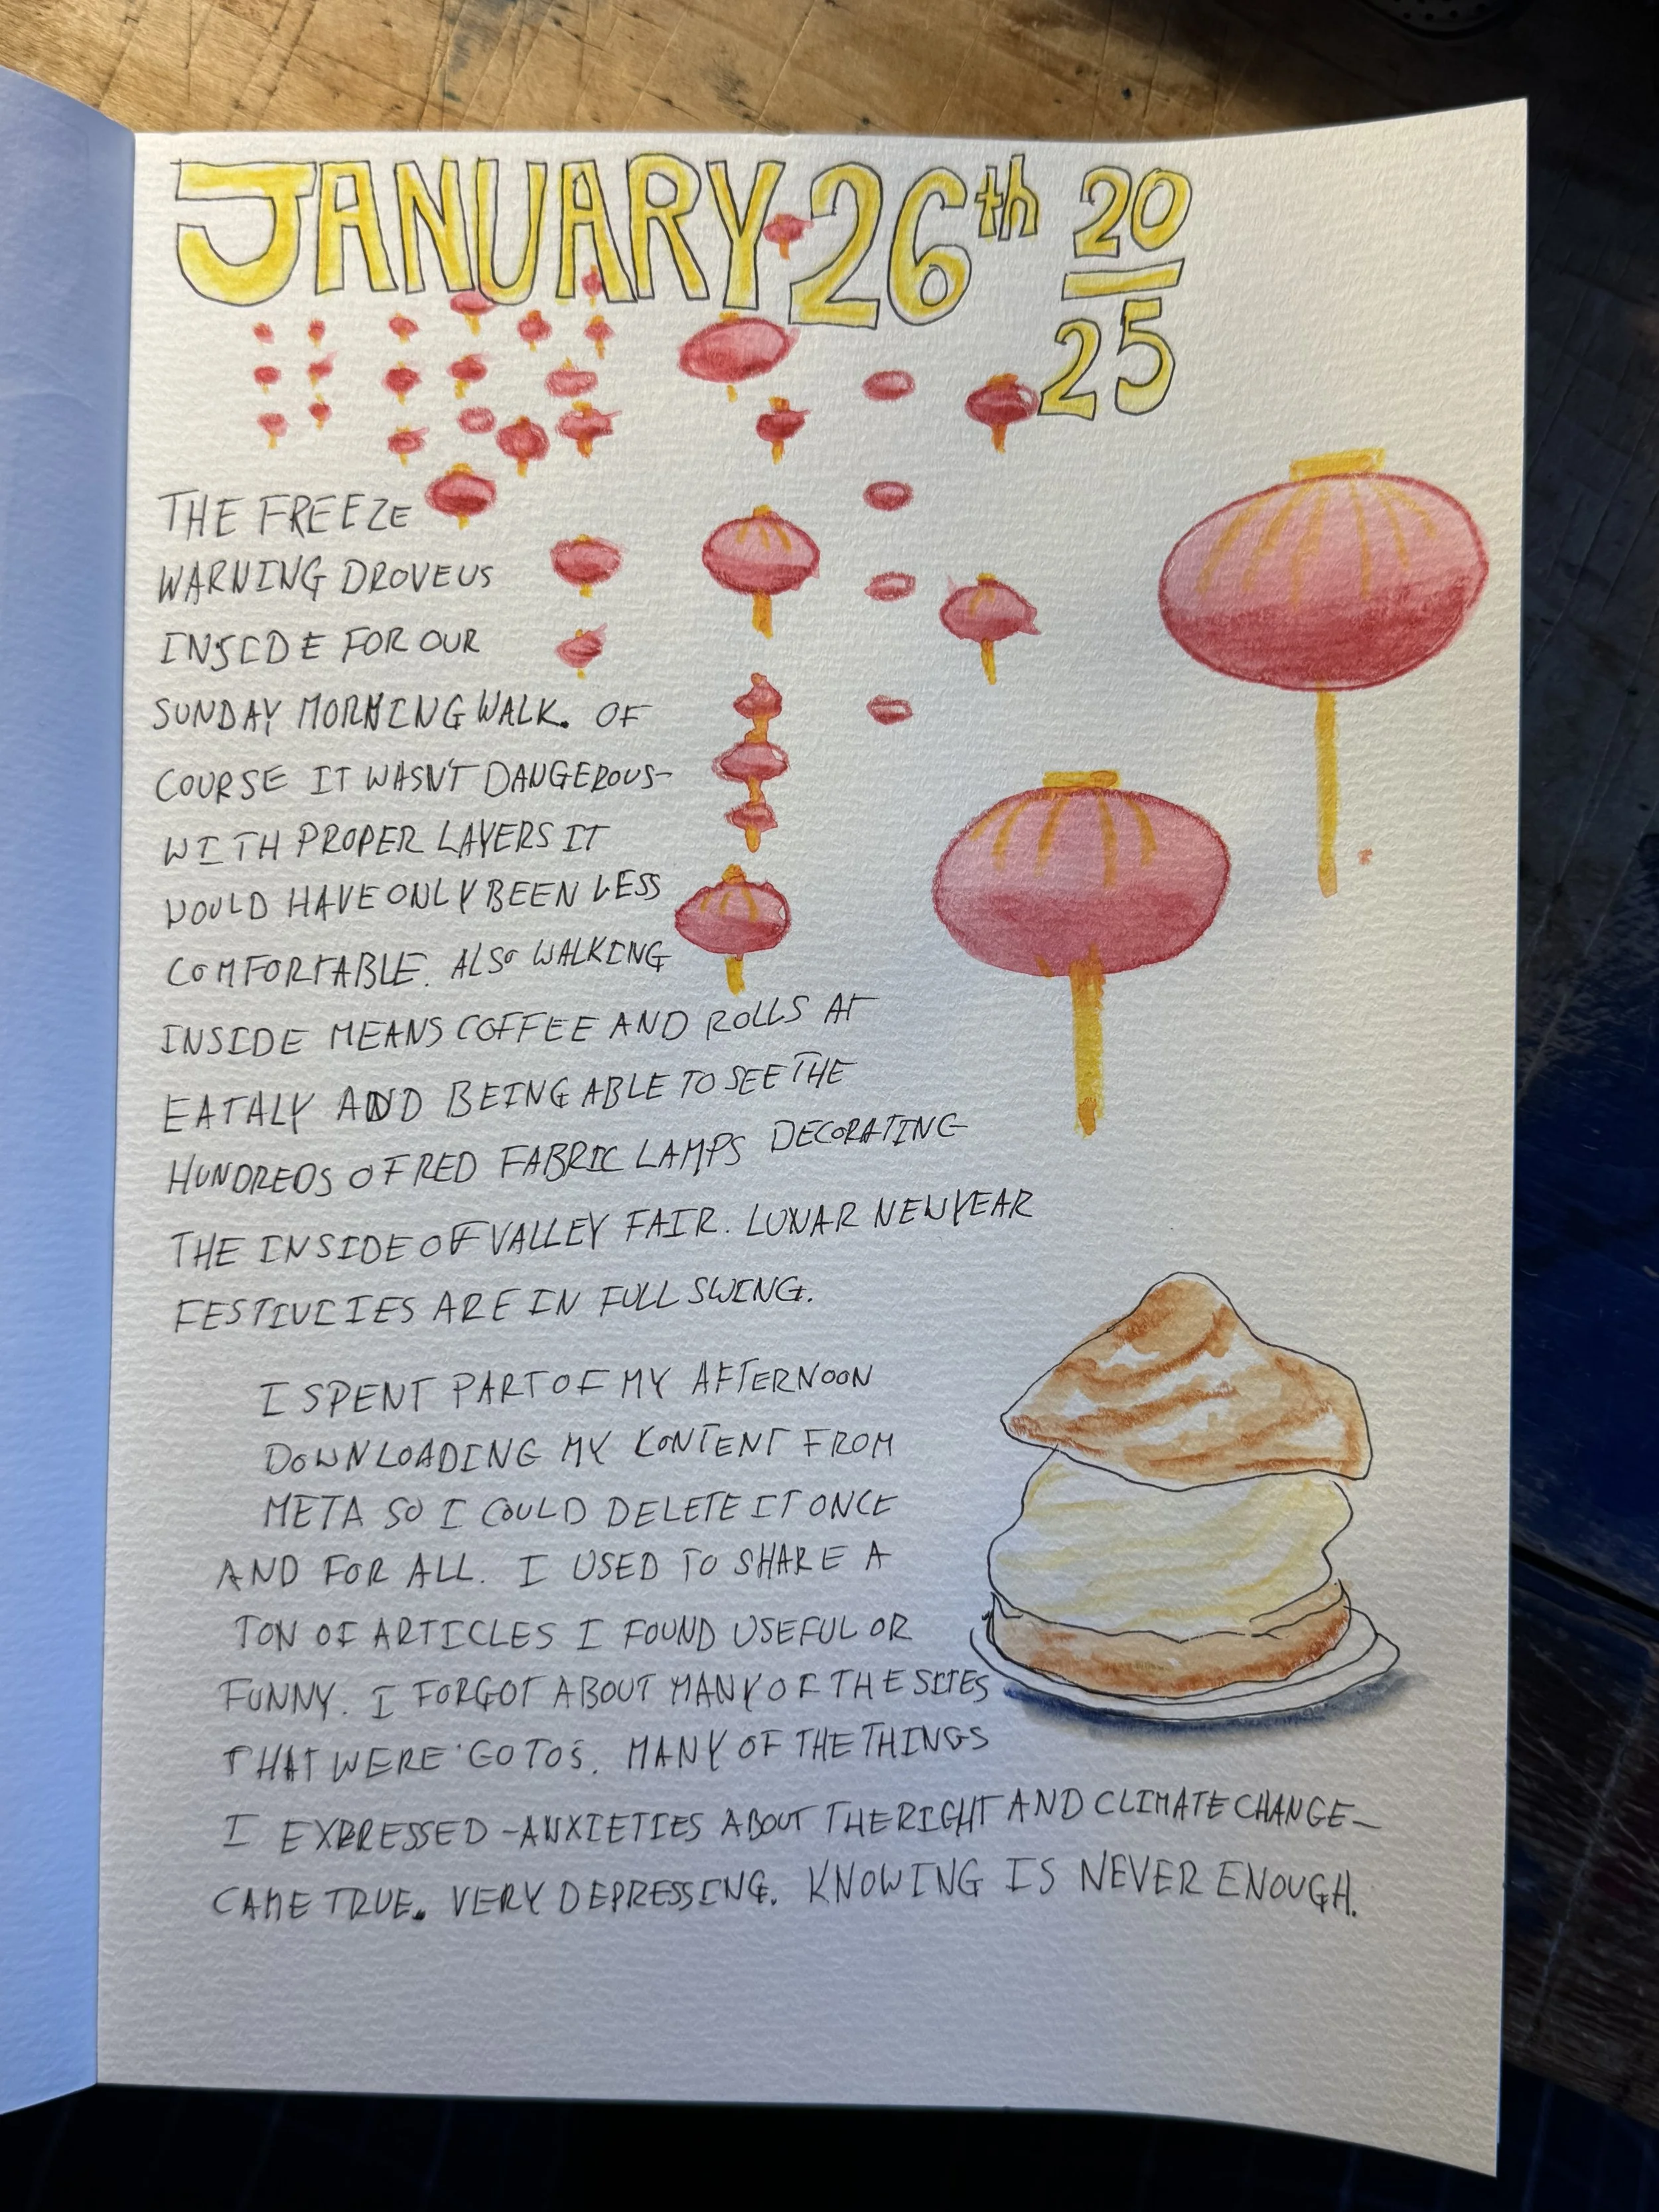 JANUARY 26th 20
25
THE FREEZE
WARNING DROVE US
INSIDE FOR OUR
SUNDAY MORNING WALK. OF
COURSE IT WASN'T DANGEROUS-
WITH PROPER LAYERS IT
WOULD HAVE ONLY BEEN LESS
COMFORTABLE. ALSO WALKING
INSIDE MEANS COFFEE AND ROLLS AT
EATALY AND BEING ABLE TO SEE THE
HUNDREDS OF RED FABRIC LAMPS DECORATING
THE INSIDE OF VALLEY FAIR. LUNAR NEW YEAR
FESTIVICIES ARE IN FULL SWING.
I SPENT PART OF MY AFTERNOON
DOWNLOADING MY CONTENT FROM
META SO I COULD DELETE IT ONCE
AND FOR ALL. I USED TO SHARE A
TON OF ARTICLES I FOUND USEFUL OR
FUNNY. I FORGOT ABOUT MANY OF THE SITES
THAT WERE 'GO TOS. MANY OF THE THINGS
I EXPRESSED -ANXIETIES ABOUT THE RIGHT AND CLIMATE CHANGE-
CAME TRUE. VERY DEPRESSING. KNOWING IS NEVER ENOUGH.